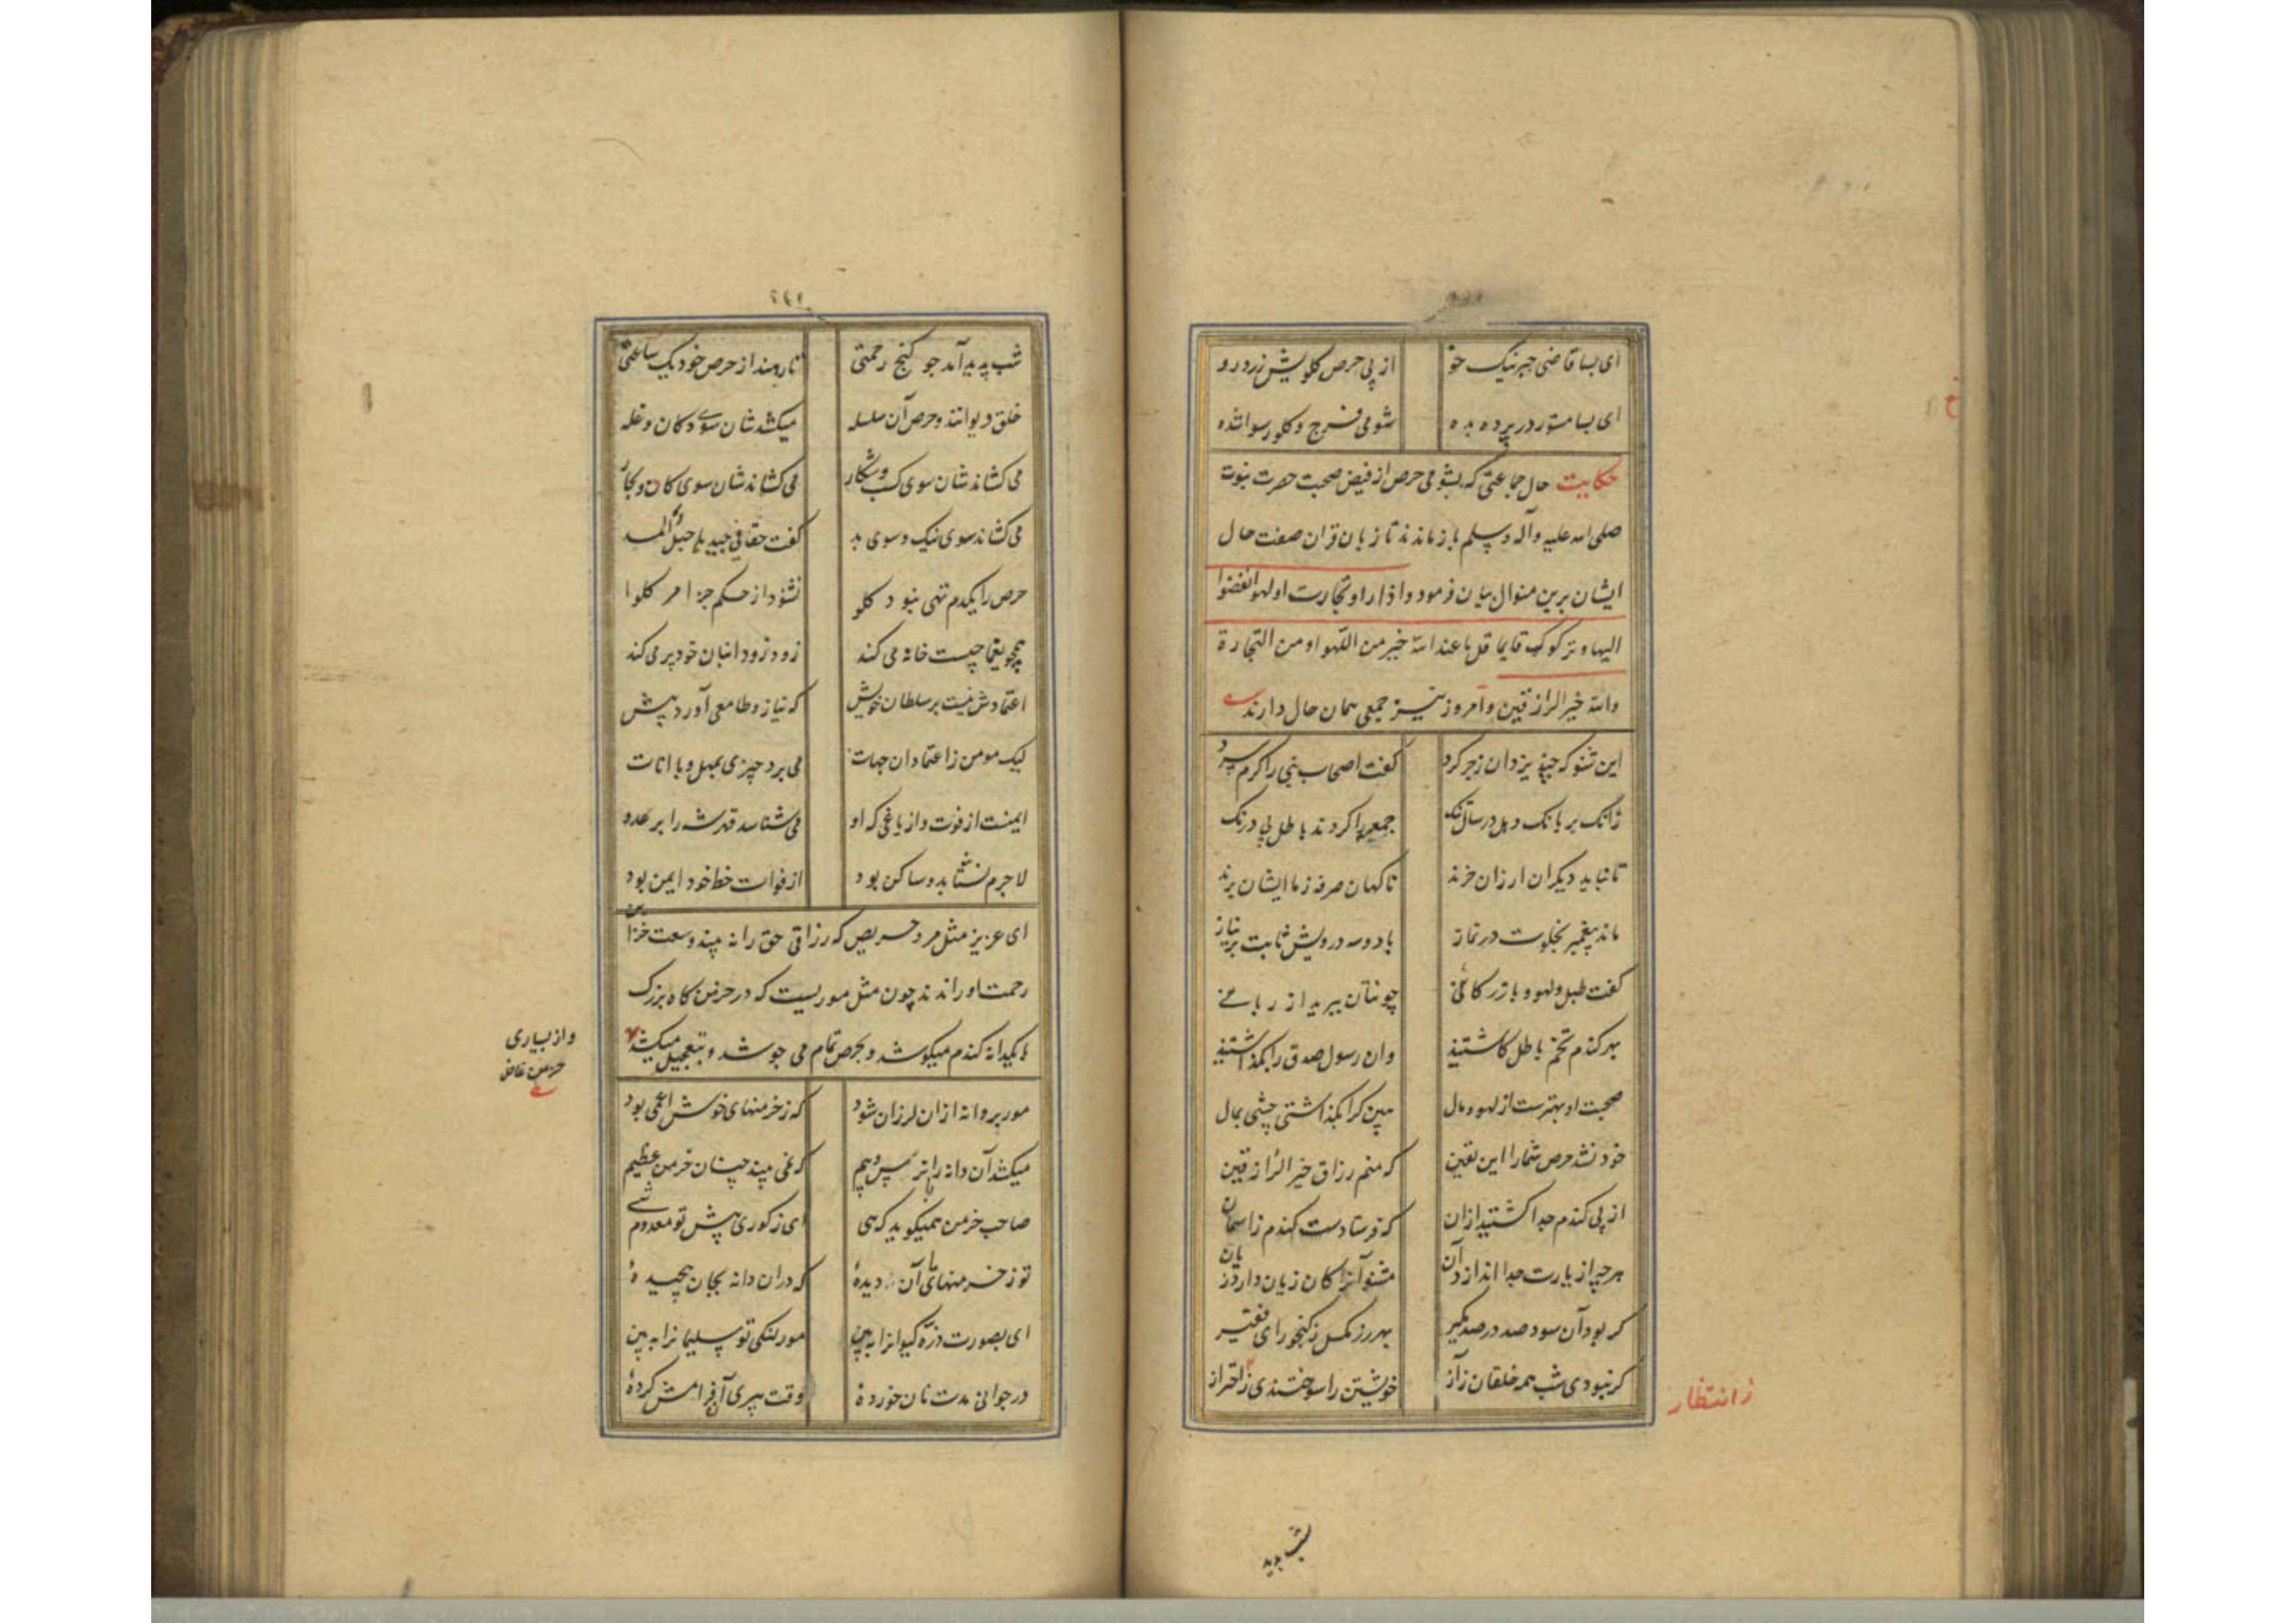 ای بسا قاضی حبر نیک خو از پی حرص گلویش زرد رو
ای بسا مستور در پرده بده شومی فرج و گلو رسوا شده
حکایت حال جماعتی که بشومی حرص از فیض صحبت حضرت نبوت
صلی الله علیه وآله وسلم باز ماندند تا زبان قران صفت حال
ایشان برین منوال بیان فرمود واذا راو تجارت اولهو انفضوا
الیها وترکوک قایما قل ما عند الله خیر من اللهو او من التجارة
والله خیر الرازقین وامروز نیز جمعی همان حال دارند
این شنو که چند یزدان زجر کرد گفت اصحاب نبی را گرم سرد
زانک بر بانک دهل در سال تنک جمعه را کردند باطل بی درنک
تا نباید دیگران ارزان خرند تا کهان صرفه زما ایشان برند
ماند پیغمبر بخلوت در نماز با دو سه درویش ثابت پر نیاز
گفت طبل ولهو و بازرگانئی چونتان ببرید از ربانئی
بهر گندم تخم باطل کاشتید وان رسول صدق را بگذاشتید
صحبت او بهترست از لهو ومال بین کرا بگذاشتی چشمی بمال
خود نشد حرص شما را این یقین که منم رزاق خیر الرازقین
از پی گندم جدا گشتید ازان که فرستادست گندم زاسمان
هرچه از یارت جدا اندازد آن مشنو آنرا کان زیان دارد زیان
گر بود آن سود صد در صد مگیر بهر زر مگسل زگنجور ای فقیر
گر نبودی شب همه خلقان زآز خویشتن را سوختندی زاحتراز
زانتظار
شب پدید
شب پدید آمد چو گنج رحمتی تا رهند از حرص خود یک ساعتی
خلق دیوانند وحرص آن سلسله میکشد شان سوی دکان وغله
می کشاند شان سوی کسب وشکار می کشاند شان سوی کان وبحار
می کشاند سوی نیک وسوی بد گفت حقا فی جیدها حبل المسد
حرص را یکدم تهی نبود گلو نشنود از حکم جز امر کلوا
همچو یغماچیست خانه می کند زود زود انبان خود پر می کند
اعتمادش نیست بر سلطان خویش که نیاز وطامعی آورد پیش
لیک مومن زاعتماد ان جهات می برد چیزی بمهل وبا انات
ایمنست از فوت واز یاغی که او می شناسد قدر شه را بر عدو
لاجرم نشتابد وساکن بود از فوات خط خود ایمن بود
ای عزیز مثل مرد حریص که رزاقی حق را نه بیند وسعت خزاین
رحمت او راندند چون مثل موریست که در خرمن گاه بزرک
با یکدانه گندم میکوشد وبحرص تمام می جوشد وبتعجیل میکشد
واز بسیاری
خرمن غافل
مور بر دانه ازان لرزان شود که زخرمنهای خوش اعمی بود
میکشد آن دانه را با ترس وبیم که نمی بیند چنان خرمن عظیم
صاحب خرمن همیگوید که هی ای زکوری پیش تو معدوم شی
تو زخرمنهای ما آن دیدهٔ که دران دانه بجان پیچیدهٔ
ای بصورت ذره کیوانرا ببین مور لنگی تو سلیمانرا ببین
در جوانی مدت نان خوردهٔ وقت پیری آن فرامش کردهٔ